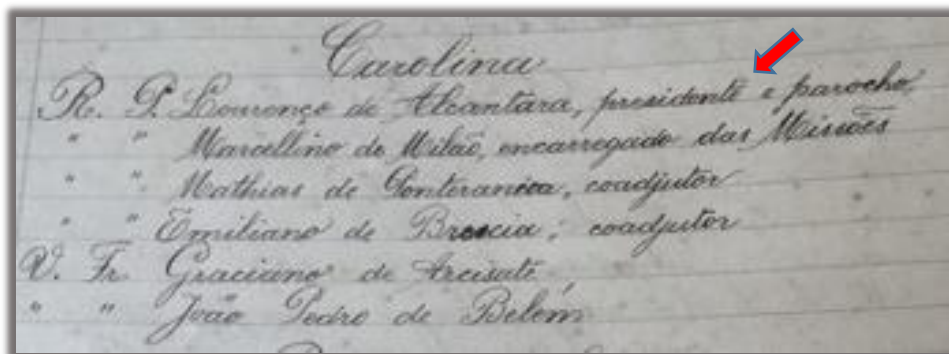 Carolina
R. P. Lourenço de Alcantara, presidente e parocho
" " Marcellino de Milão, encarregado das Missões
" " Mathias de Ponteranica, coadjutor
" " Emiliano de Brescia, coadjutor
V. Fr. Graciano de Arcisate,
" " João Pedro de Belém